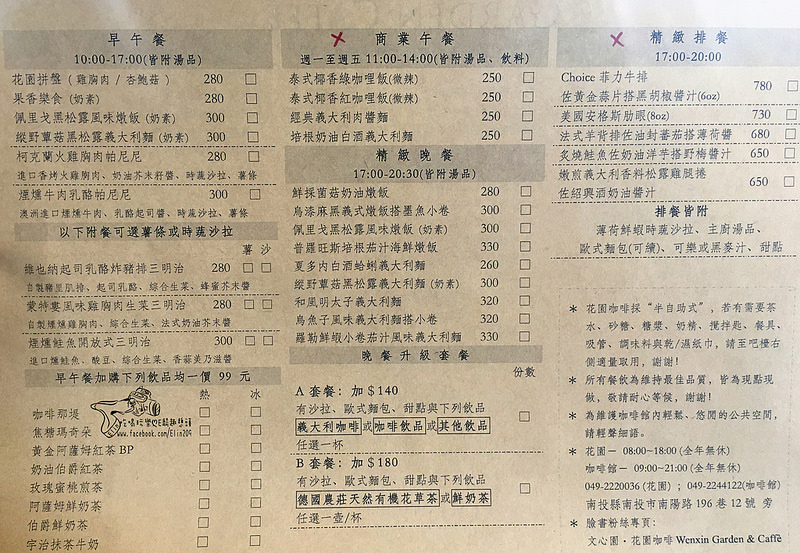 早午餐
10:00-17:00(皆附湯品)
花園拼盤（雞胸肉 / 杏鮑菇） 280 □
果香樂食 (奶素) 280 □
佩里戈黑松露風味燉飯 (奶素) 300 □
縱野蕈菇黑松露義大利麵 (奶素) 300 □
柯克蘭火雞胸肉帕尼尼 280 □
進口香烤火雞胸肉、奶油芥末籽醬、時蔬沙拉、薯條
煙燻牛肉乳酪帕尼尼 300 □
澳洲進口煙燻牛肉、乳酪起司醬、時蔬沙拉、薯條
以下附餐可選薯條或時蔬沙拉
薯 沙
維也納起司乳酪炸豬排三明治 280 □ □
自製豬里肌排、起司乳酪、綜合生菜、蜂蜜芥末醬
蒙特婁風味雞胸肉生菜三明治 280 □ □
自製煙燻雞胸肉、綜合生菜、法式奶油芥末醬
煙燻鮭魚開放式三明治 300 □ □
進口燻鮭魚、酸豆、綜合生菜、香蒜美乃滋醬
早午餐加購下列飲品均一價 99 元
熱 冰
咖啡那堤 □ □
焦糖瑪奇朵 □
www.facebook.com/Elin209
黃金阿薩姆紅茶 BP □ □
奶油伯爵紅茶 □ □
玫瑰蜜桃煎茶 □ □
阿薩姆鮮奶茶 □ □
伯爵鮮奶茶 □ □
宇治抹茶牛奶 □ □
商業午餐
週一至週五 11:00-14:00(皆附湯品、飲料)
泰式椰香綠咖哩飯(微辣) 250 □
泰式椰香紅咖哩飯(微辣) 250 □
經典義大利肉醬麵 250 □
培根奶油白酒義大利麵 250 □
精緻晚餐
17:00-20:30(皆附湯品)
鮮採菌菇奶油燉飯 280 □
烏漆麻黑義式燉飯搭墨魚小卷 300 □
佩里戈黑松露風味燉飯 (奶素) 300 □
普羅旺斯培根茄汁海鮮燉飯 330 □
夏多內白酒蛤蜊義大利麵 260 □
縱野蕈菇黑松露義大利麵 (奶素) 300 □
和風明太子義大利麵 320 □
烏魚子風味義大利麵搭小卷 320 □
羅勒鮮蝦小卷茄汁風味義大利麵 330 □
晚餐升級套餐
份數
A 套餐：加 $140
有沙拉、歐式麵包、甜點與下列飲品 □
義大利咖啡或咖啡飲品或其他飲品
任選一杯
B 套餐：加 $180
有沙拉、歐式麵包、甜點與下列飲品 □
德國農莊天然有機花草茶或鮮奶茶
任選一壺/杯
精緻排餐
17:00-20:00
Choice 菲力牛排
佐黃金蒜片搭黑胡椒醬汁(6oz) 780 □
美國安格斯肋眼(8oz) 730 □
法式羊背排佐油封蕃茄搭薄荷醬 680 □
炙燒鮭魚佐奶油洋芋搭野梅醬汁 650 □
嫩煎義大利香料松露雞腿捲
佐紹興酒奶油醬汁 650 □
排餐皆附
薄荷鮮蝦時蔬沙拉、主廚湯品、
歐式麵包(可續)、可樂或黑麥汁、甜點
* 花園咖啡採“半自助式”，若有需要茶
水、砂糖、糖漿、奶精、攪拌匙、餐具、
吸管、調味料與乾/濕紙巾，請至吧檯右
側適量取用，謝謝!
* 所有餐飲為維持最佳品質，皆為現點現
做，敬請耐心等候，謝謝!
* 為維護咖啡館內輕鬆、悠閒的公共空間，
請輕聲細語。
* 花園－ 08:00~18:00 (全年無休)
咖啡館－ 09:00~21:00 (全年無休)
049-2220036 (花園)；049-2244122(咖啡館)
南投縣南投市南陽路 196 巷 12 號 旁
* 臉書粉絲專頁:
文心園・花園咖啡 Wenxin Garden & Caffè